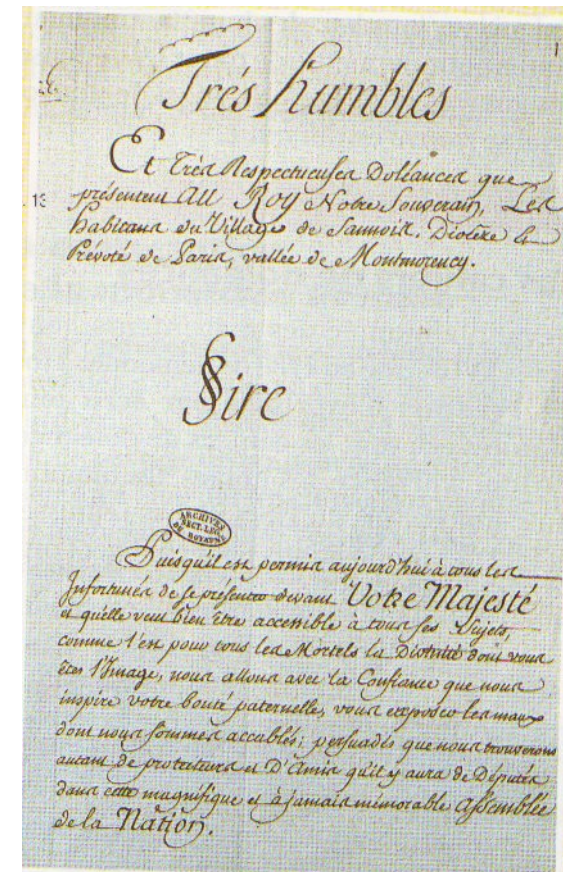 1
Trés humbles
Et Très Respectueuses Doléances que
13
présentent AU ROY Notre Souverain, Les
habitans du Village de Sannois. Diocèze &
Prévoté de Paris, vallée de Montmorency.
Sire
ARCHIVES
SECT. LEG.
DU ROYAUME
Puisqu'il est permis aujourd'hui à tous les
Infortunés de se présenter devant Votre Majesté
et qu'elle veut bien être accessible à tous ses Sujets,
comme l'est pour tous les Mortels la Divinité dont vous
êtes l'Image, nous allons avec la Confiance que nous
inspire votre bonté paternelle, vous exposer les maux
dont nous sommes accablés; persuadés que nous trouverons
autant de protecteurs et D'Amis qu'il y aura de Députés
dans cette magnifique et à jamais mémorable Assemblée
de la Nation.